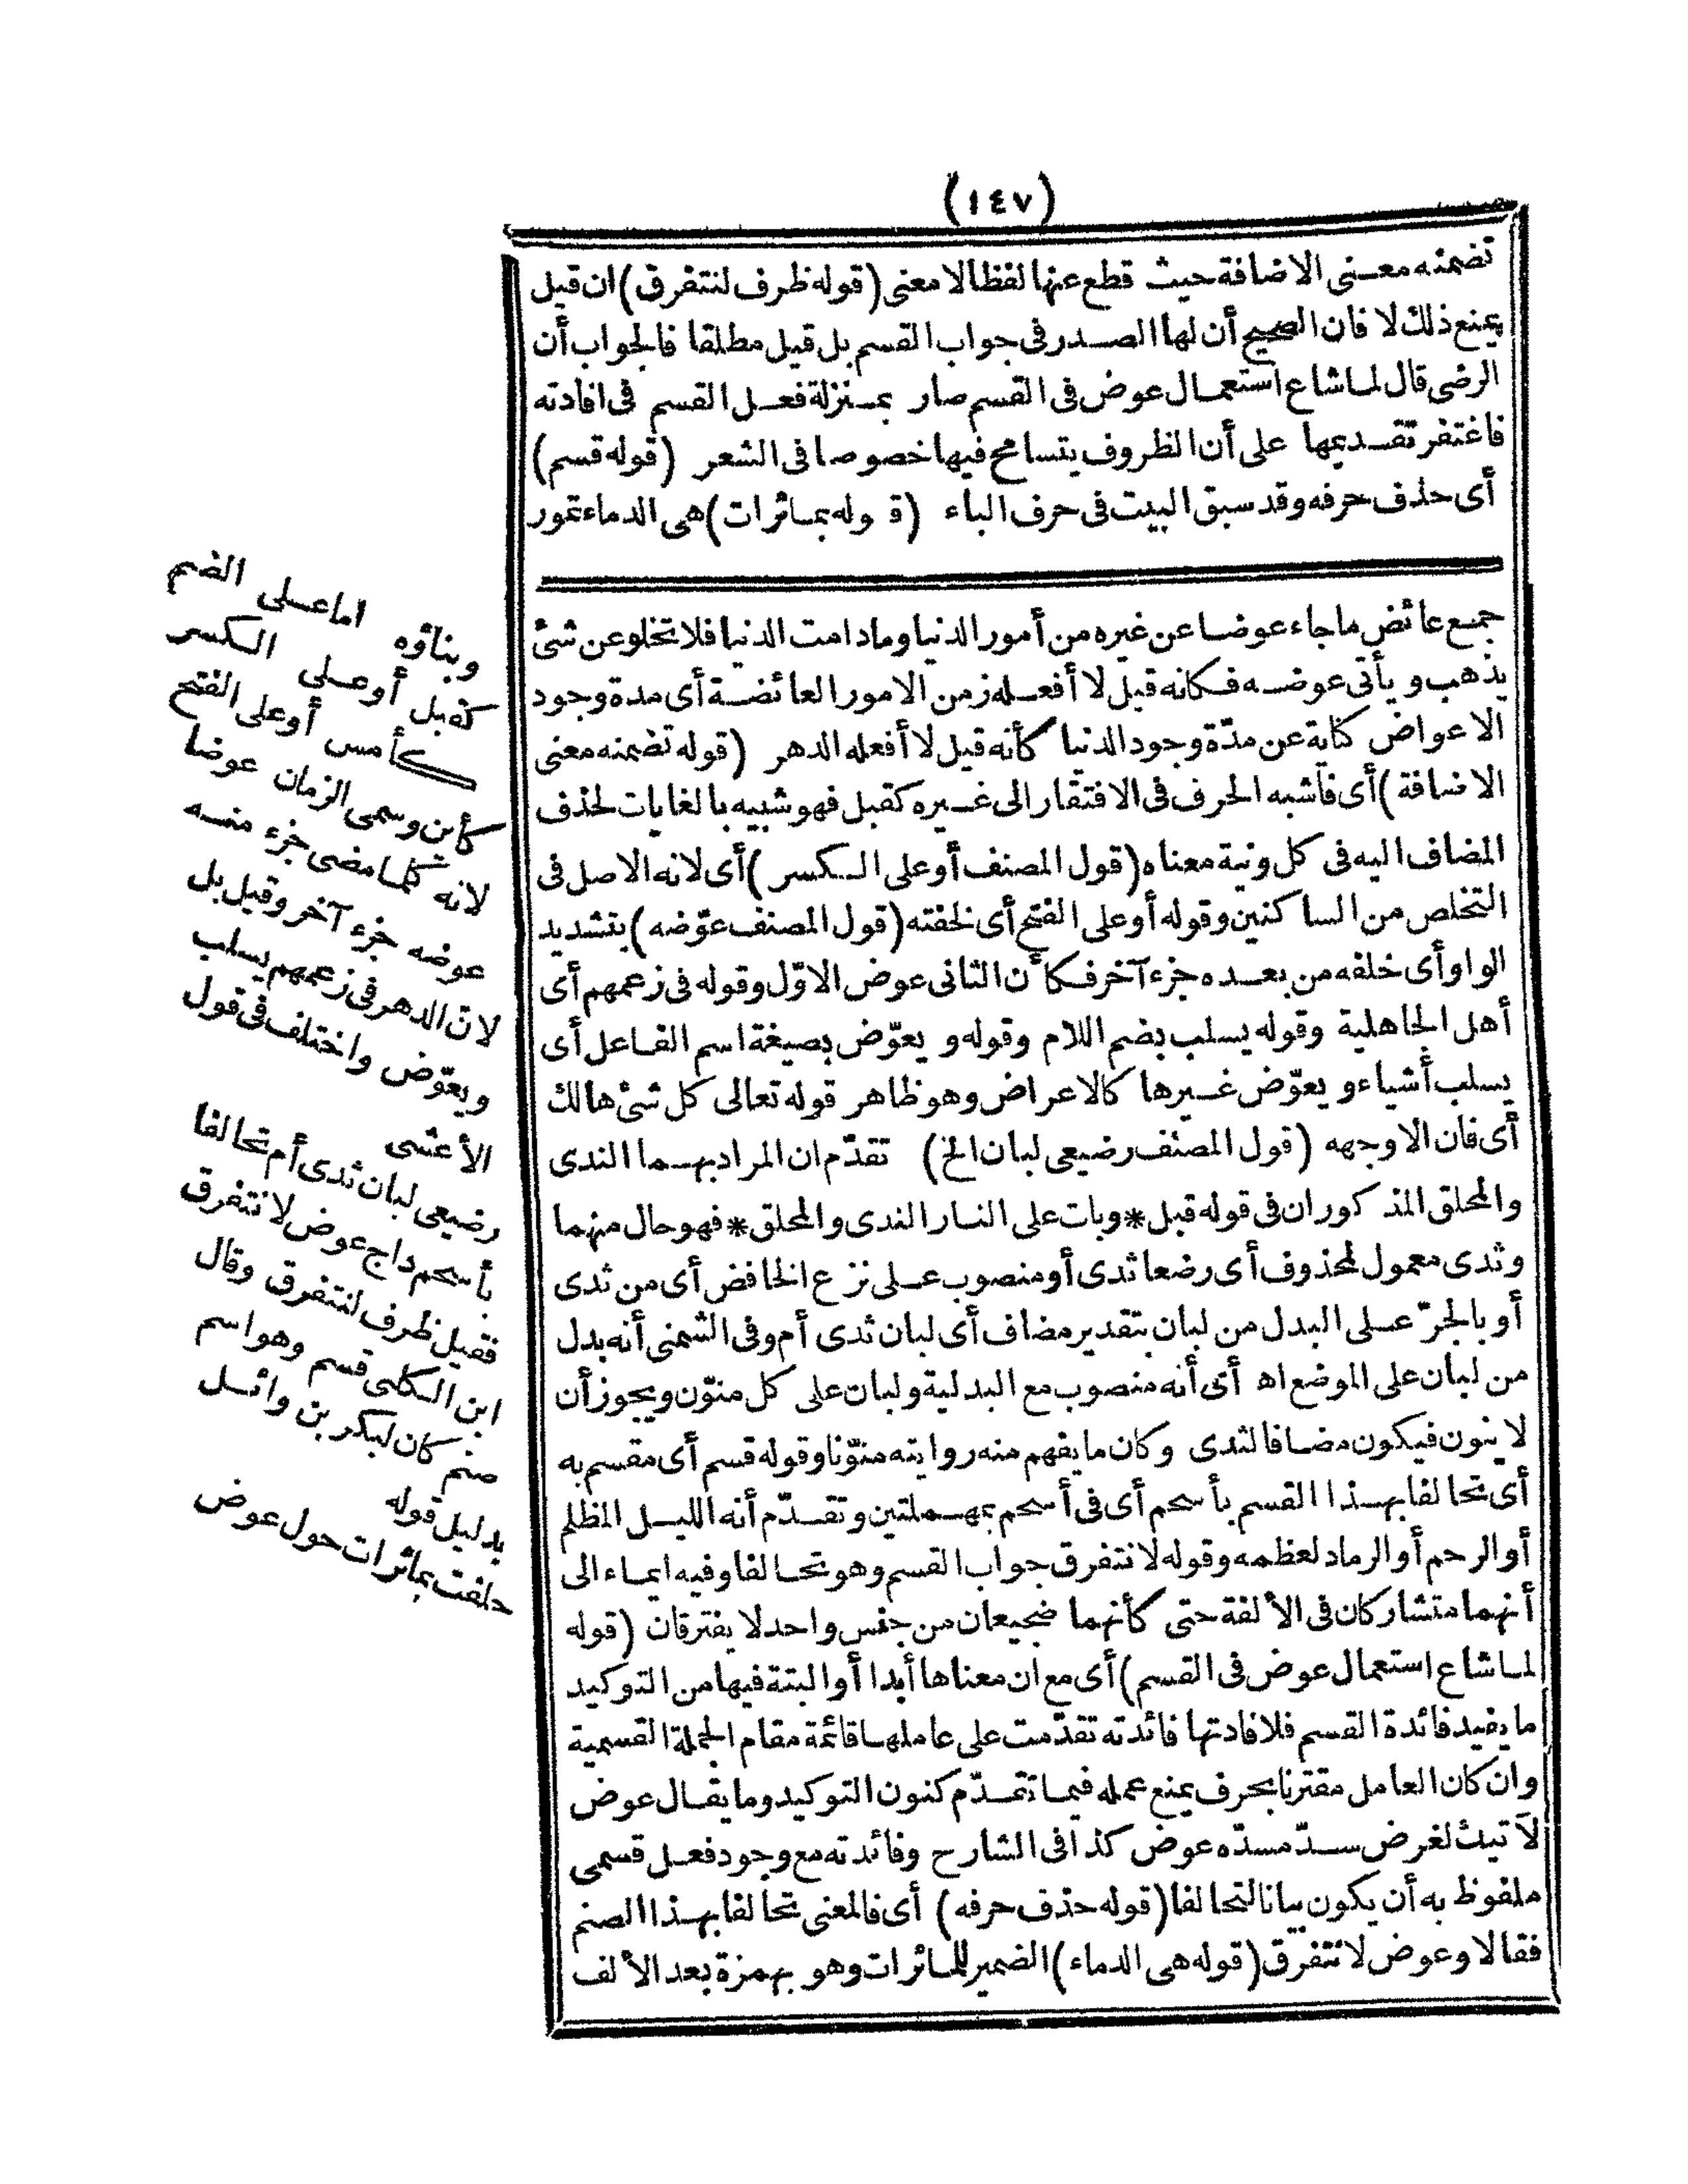 (١٤٧)
تضمنه معنى الاضافة حيث قطع عنها لفظا لا معنى (قوله ظرف لنتفرق) ان قيل
يمنع ذلك لا فان الصحيح أن لها الصدر فى جواب القسم بل قيل مطلقا فالجواب أن
الرضى قال لما شاع استعمال عوض فى القسم صار بمنزلة فعل القسم فى افادته
فاغتفر تقديمها على أن الظروف يتسامح فيها خصوصا فى الشعر (قوله قسم)
أى حذف حرفه وقد سبق البيت فى حرف الباء (قوله بمائرات) هى الدماء تمور
جميع عائض ما جاء عوضا عن غيره من أمور الدنيا وما دامت الدنيا فلا تخلو عن شئ
يذهب ويأتى عوضه فكانه قيل لا أفعله زمن الامور العائضة أى مدة وجود
الاعواض كناية عن مدّة وجود الدنيا كأنه قيل لا أفعله الدهر (قوله تضمنه معنى
الاضافة) أى فأشبه الحرف فى الافتقار الى غيره كقبل فهو شبيه بالغايات لحذف
المضاف اليه فى كل ونية معناه (قول المصنف أو على الكسر) أى لانه الاصل فى
التخلص من الساكنين وقوله أو على الفتح أى لخفته (قول المصنف عوّضه) بتشديد
الواو أى خلفه من بعده جزء آخر فكأن الثانى عوض الاوّل وقوله فى زعمهم أى
أهل الجاهلية وقوله يسلب بضم اللام وقوله ويعوّض بصيغة اسم الفاعل أى
يسلب أشياء ويعوّض غيرها كالاعراض وهو ظاهر قوله تعالى كل شئ هالك
أى فان الا وجهه (قول المصنف رضيعى لبان الخ) تقدّم ان المراد بهما الندى
والمحلق المذكوران فى قوله قبل * وبات على النار الندى والمحلق * فهو حال منهما
وثدى معمول لمحذوف أى رضعا ثدى أو منصوب على نزع الخافض أى من ثدى
أو بالجرّ على البدل من لبان بتقدير مضاف أى لبان ثدى أم وفى الشمنى أنه بدل
من لبان على الموضع اه أى أنه منصوب مع البدلية ولبان على كل منوّن ويجوز أن
لا ينون فيكون مضافا لثدى وكان ما يفهم منه روايته منوّنا وقوله قسم أى مقسم به
أى تحالفا بهذا القسم بأسحم أى فى أسحم بمهملتين وتقدّم أنه الليل المظلم
أو الرحم أو الرماد لعظمه وقوله لا نتفرق جواب القسم وهو تحالفا وفيه ايماء الى
أنهما متشاركان فى الألفة حتى كأنهما ضجيعان من جنس واحد لا يفترقان (قوله
لما شاع استعمال عوض فى القسم) أى مع ان معناها أبدا أو البتة فيها من التوكيد
ما يفيد فائدة القسم فلافادتها فائدته تقدّمت على عاملها قائمة مقام الجملة القسمية
وان كان العامل مقترنا بحرف يمنع عمله فيما تقدّم كنون التوكيد وما يقال عوض
لآتينك لغرض سدّ مسدّه عوض كذا فى الشارح وفائدته مع وجود فعل قسمى
ملفوظ به أن يكون بيانا لتحالفا (قوله حذف حرفه) أى فالمعنى تحالفا بهذا الصنم
فقالا وعوض لا نتفرق (قوله هى الدماء) الضمير للمائرات وهو بهمزة بعد الألف
وبناؤه اما على الضم
كقبل أو على الكسر
كأمس أو على الفتح
كأين وسمى الزمان عوضا
لانه كلما مضى جزء منه
عوضه جزء آخر وقيل بل
لان الدهر فى زعمهم يسلب
ويعوّض واختلف فى قول
الأعشى
رضيعى لبان ثدى أم تحالفا
بأسحم داج عوض لا نتفرق
فقيل ظرف لنتفرق وقال
ابن الكلبى قسم وهو اسم
صنم كان لبكر بن وائل
بدليل قوله
حلفت بمائرات حول عوض